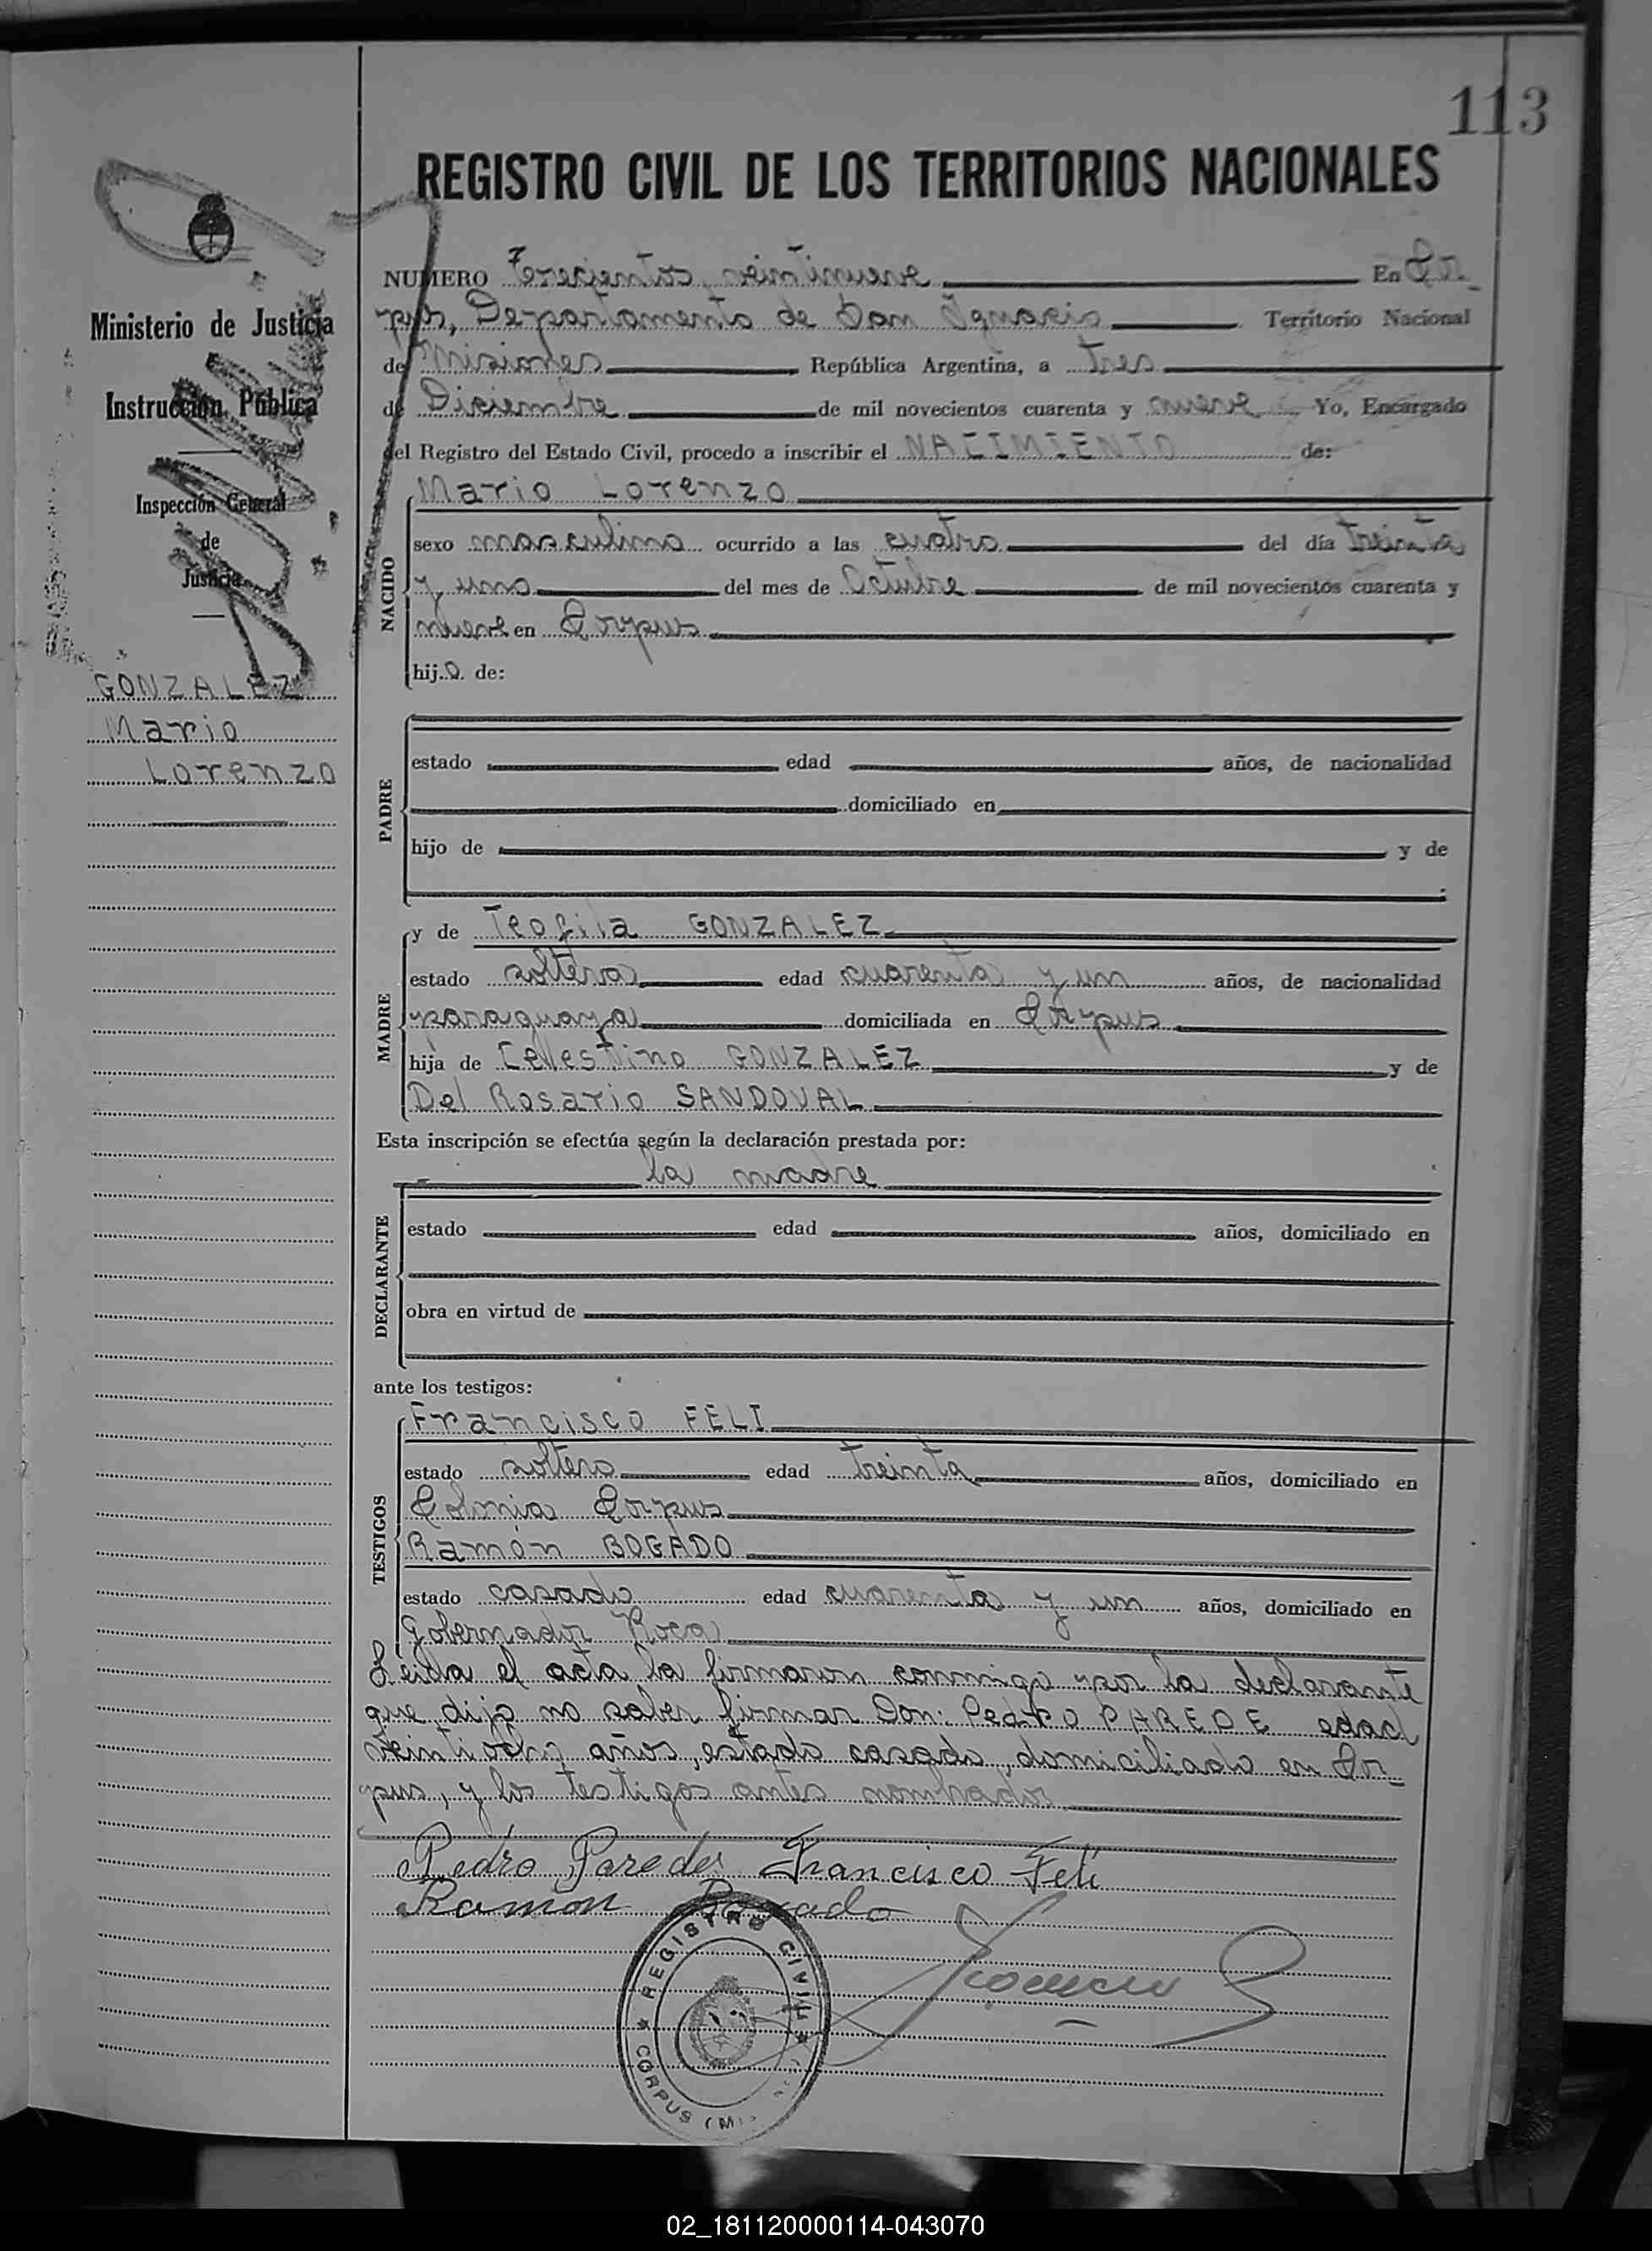 113
REGISTRO CIVIL DE LOS TERRITORIOS NACIONALES
Ministerio de Justicia
Instrucción Pública
Inspección General
de
Justicia
GONZALEZ
Mario
Lorenzo
NUMERO Trescientos veintinueve En Cor_
pus, Departamento de San Ignacio Territorio Nacional
de Misiones República Argentina, a tres
de Diciembre de mil novecientos cuarenta y nueve Yo, Encargado
del Registro del Estado Civil, procedo a inscribir el NACIMIENTO de:
NACIDO
Mario Lorenzo
sexo masculino ocurrido a las cuatro del día treinta
y uno del mes de Octubre de mil novecientos cuarenta y
nueve en Corpus
hijo de:
PADRE
estado edad años, de nacionalidad
domiciliado en
hijo de y de
MADRE
y de Teofila GONZALEZ
estado soltera edad cuarenta y un años, de nacionalidad
paraguaya domiciliada en Corpus
hija de Celestino GONZALEZ y de
Del Rosario SANDOVAL
Esta inscripción se efectúa según la declaración prestada por:
la madre
DECLARANTE
estado edad años, domiciliado en
obra en virtud de
ante los testigos:
TESTIGOS
Francisco FELI
estado soltero edad treinta años, domiciliado en
Colonia Corpus
Ramón BOGADO
estado casado edad cuarenta y un años, domiciliado en
Gobernador Roca
Leida el acta la firmaron conmigo por la declarante
que dijo no saber firmar Don: Pedro PAREDE edad
veintiocho años, estado casado, domiciliado en Cor_
pus, y los testigos antes nombrados
Pedro Paredes Francisco Feli
Ramón Bogado
REGISTRO CIVIL
CORPUS (Mis
02_181120000114-043070